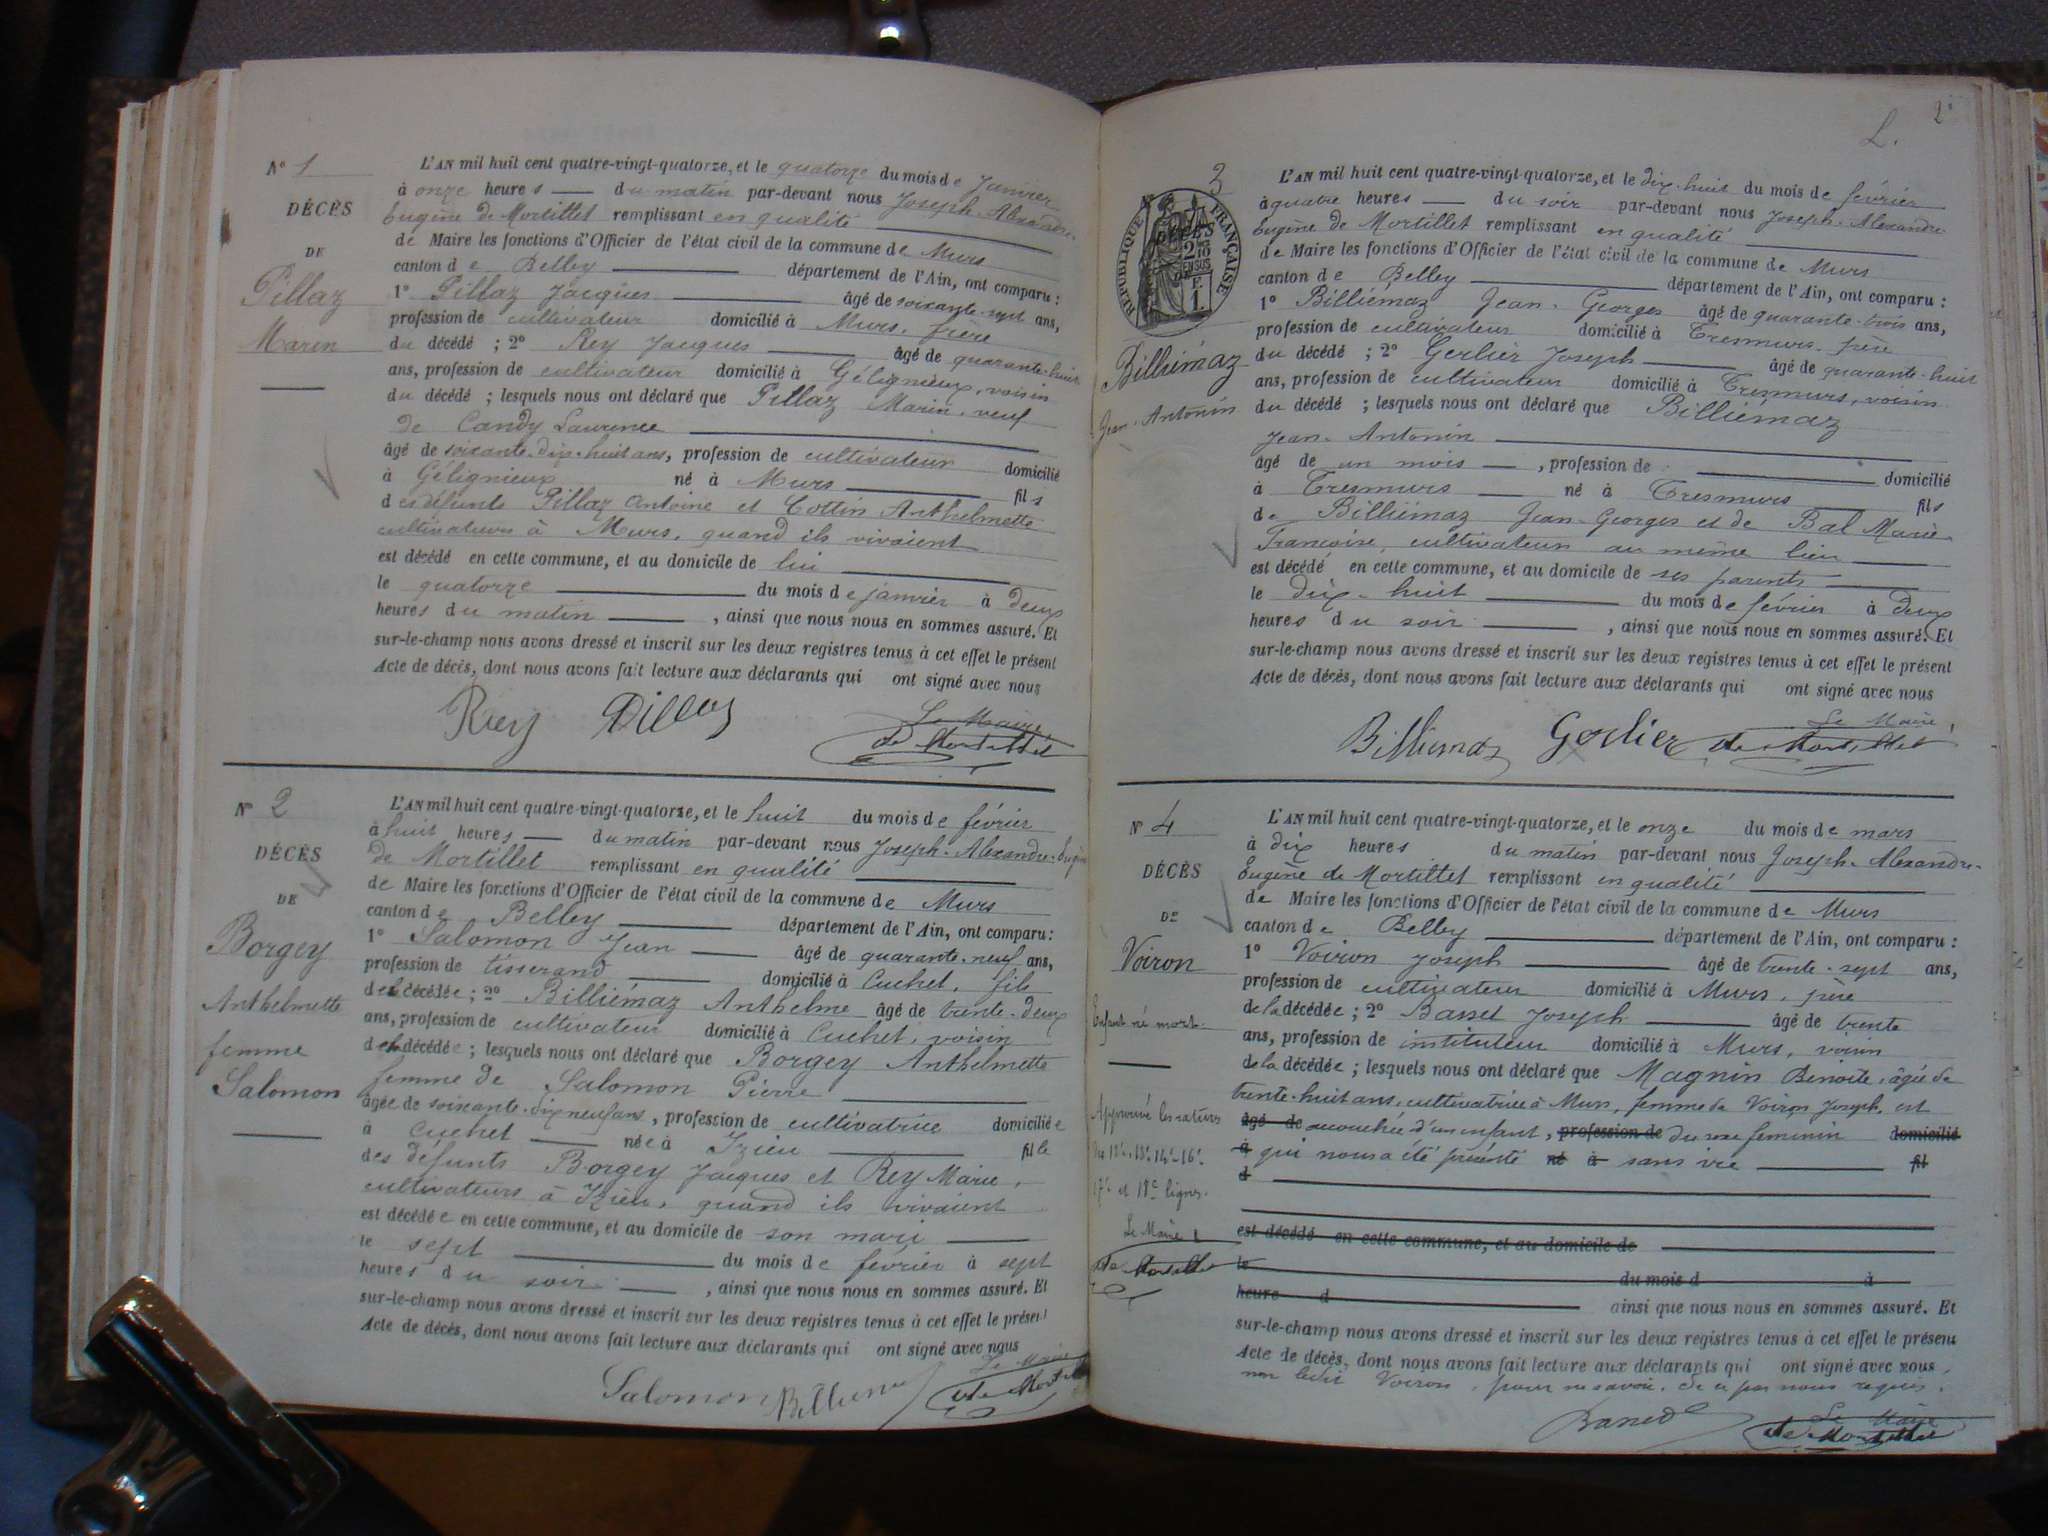 N° 1
DÉCÈS
DE
Pillaz
Marin
L'AN mil huit cent quatre-vingt-quatorze, et le quatorze du mois de Janvier
à onze heures du matin par-devant nous Joseph-Alexandre-
Eugène de Mortillet remplissant en qualité
de Maire les fonctions d'Officier de l'état civil de la commune de Murs
canton de Belley département de l'Ain, ont comparu :
1° Pillaz Jacques âgé de soixante-sept ans,
profession de cultivateur domicilié à Murs, frère
du décédé ; 2° Rey Jacques âgé de quarante-huit
ans, profession de cultivateur domicilié à Gélignieux, voisin
du décédé ; lesquels nous ont déclaré que Pillaz Marin, veuf
de Candy Laurence
âgé de soixante-dix-huit ans, profession de cultivateur domicilié
à Gélignieux né à Murs fils
des défunts Pillaz Antoine et Cottin Anthelmette
cultivateurs à Murs, quand ils vivaient
est décédé en cette commune, et au domicile de lui
le quatorze du mois de janvier à deux
heures du matin , ainsi que nous nous en sommes assuré. Et
sur-le-champ nous avons dressé et inscrit sur les deux registres tenus à cet effet le présent
Acte de décès, dont nous avons fait lecture aux déclarants qui ont signé avec nous
Rey Pillaz Le Maire
de Mortillet
N° 2
DÉCÈS
DE
Borgey
Anthelmette
femme
Salomon
L'AN mil huit cent quatre-vingt-quatorze, et le huit du mois de février
à huit heures du matin par-devant nous Joseph-Alexandre-Eugène
de Mortillet remplissant en qualité
de Maire les fonctions d'Officier de l'état civil de la commune de Murs
canton de Belley département de l'Ain, ont comparu :
1° Salomon Jean âgé de quarante-neuf ans,
profession de tisserand domicilié à Cuchet, fils
de la décédée ; 2° Billiémaz Anthelme âgé de trente-deux
ans, profession de cultivateur domicilié à Cuchet, voisin
de la décédée ; lesquels nous ont déclaré que Borgey Anthelmette
femme de Salomon Pierre
âgée de soixante-dix neuf ans, profession de cultivatrice domiciliée
à Cuchet née à Izieu fille
des défunts Borgey Jacques et Rey Marie,
cultivateurs à Izieu, quand ils vivaient
est décédée en cette commune, et au domicile de son mari
le sept du mois de février à sept
heures du soir , ainsi que nous nous en sommes assuré. Et
sur-le-champ nous avons dressé et inscrit sur les deux registres tenus à cet effet le présent
Acte de décès, dont nous avons fait lecture aux déclarants qui ont signé avec nous
Le Maire
Salomon Billiemaz de Mortillet
L. 2
3
RÉPUBLIQUE FRANÇAISE
Billiémaz
Jean-Antonin
L'AN mil huit cent quatre-vingt-quatorze, et le dix-huit du mois de février
à quatre heures du soir par-devant nous Joseph-Alexandre
Eugène de Mortillet remplissant en qualité
de Maire les fonctions d'Officier de l'état civil de la commune de Murs
canton de Belley département de l'Ain, ont comparu :
1° Billiémaz Jean-Georges âgé de quarante-trois ans,
profession de cultivateur domicilié à Tresmurs, père
du décédé ; 2° Gerlier Joseph âgé de quarante-huit
ans, profession de cultivateur domicilié à Tresmurs, voisin
du décédé ; lesquels nous ont déclaré que Billiémaz
Jean-Antonin
âgé de un mois , profession de domicilié
à Tresmurs né à Tresmurs fils
de Billiémaz Jean-Georges et de Bal Marie
Françoise, cultivateurs au même lieu
est décédé en cette commune, et au domicile de ses parents
le dix-huit du mois de février à deux
heures du soir , ainsi que nous nous en sommes assuré. Et
sur-le-champ nous avons dressé et inscrit sur les deux registres tenus à cet effet le présent
Acte de décès, dont nous avons fait lecture aux déclarants qui ont signé avec nous
Le Maire,
Billiemaz Gerlier de Mortillet
N° 4
DÉCÈS
DE
Voiron
Enfant né mort.
Approuvé les ratures
des 12e 13e 14e 16e
17e et 18e lignes.
Le Maire
de Mortillet
L'AN mil huit cent quatre-vingt-quatorze, et le onze du mois de mars
à dix heures du matin par-devant nous Joseph-Alexandre-
Eugène de Mortillet remplissant en qualité
de Maire les fonctions d'Officier de l'état civil de la commune de Murs
canton de Belley département de l'Ain, ont comparu :
1° Voiron Joseph âgé de trente-sept ans,
profession de cultivateur domicilié à Murs, père
de la décédée ; 2° Basset Joseph âgé de trente
ans, profession de instituteur domicilié à Murs, voisin
de la décédée ; lesquels nous ont déclaré que Magnin Benoite, âgée de
trente-huit ans, cultivatrice à Murs, femme de Voiron Joseph, est
âgé de accouchée d'un enfant, profession de du sexe feminin domicilié
à qui nous a été présenté né à sans vie fil
d
est décédé en cette commune, et au domicile de
le du mois d à
heure d ainsi que nous nous en sommes assuré. Et
sur-le-champ nous avons dressé et inscrit sur les deux registres tenus à cet effet le présent
Acte de décès, dont nous avons fait lecture aux déclarants qui ont signé avec nous,
non ledit Voiron, pour ne savoir, de ce par nous requis.
Le Maire
de Mortillet